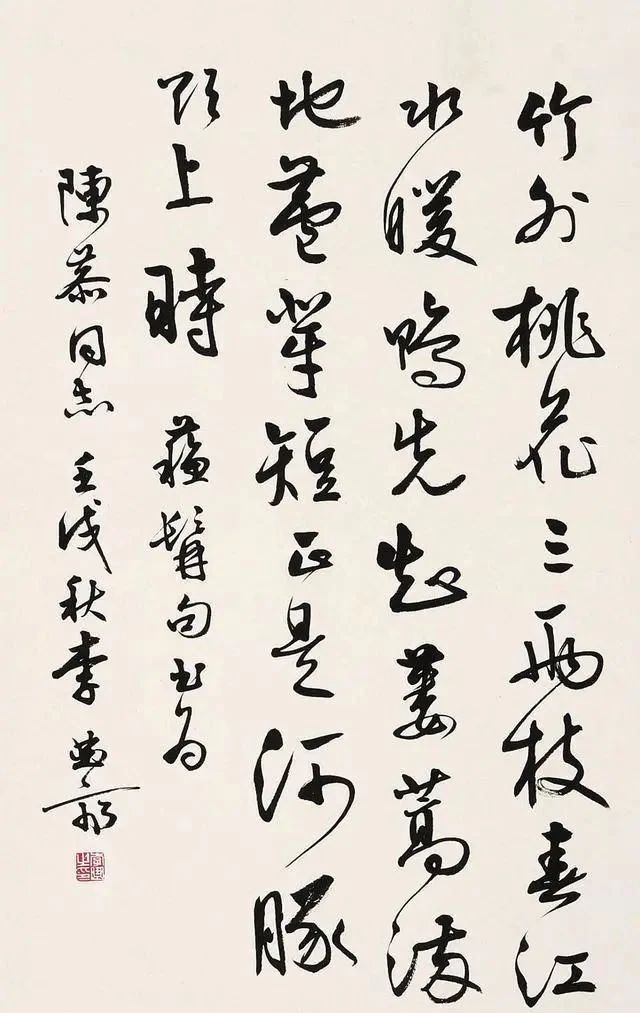 竹外桃花三兩枝春江
水暖鴨先知蔞蒿滿
地蘆芽短正是河豚
欲上時 蘇髯句書為
陳恭同志 壬戌秋李